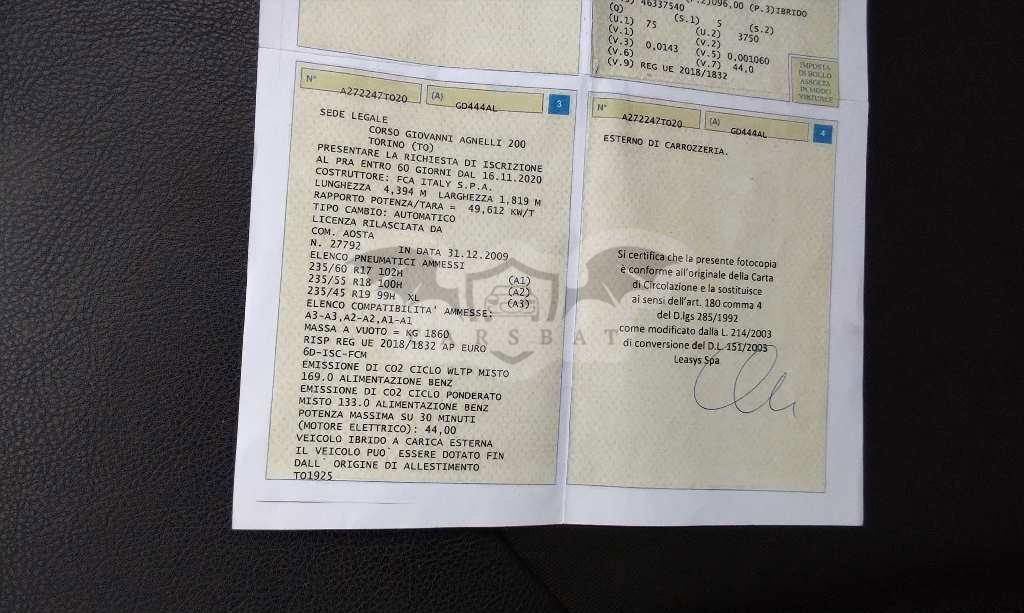 096,00 (P.3)IBRIDO
46337540
(Q) (S.1) 5 (S.2)
(U.1) 75 (U.2) 3750
(V.1) (V.2)
(V.3) 0,0143 (V.5) 0,001060
(V.6) (V.7) 44,0
(V.9) REG UE 2018/1832
IMPOSTA
DI BOLLO
ASSOLTA
IN MODO
VIRTUALE
N° A272247TO20 (A) GD444AL 3
SEDE LEGALE
CORSO GIOVANNI AGNELLI 200
TORINO (TO)
PRESENTARE LA RICHIESTA DI ISCRIZIONE
AL PRA ENTRO 60 GIORNI DAL 16.11.2020
COSTRUTTORE: FCA ITALY S.P.A.
LUNGHEZZA 4,394 M LARGHEZZA 1,819 M
RAPPORTO POTENZA/TARA = 49,612 KW/T
TIPO CAMBIO: AUTOMATICO
LICENZA RILASCIATA DA
COM. AOSTA
N. 27792 IN DATA 31.12.2009
ELENCO PNEUMATICI AMMESSI
235/60 R17 102H (A1)
235/55 R18 100H (A2)
235/45 R19 99H XL (A3)
ELENCO COMPATIBILITA' AMMESSE:
A3-A3,A2-A2,A1-A1
MASSA A VUOTO = KG 1860
RISP REG UE 2018/1832 AP EURO
6D-ISC-FCM
EMISSIONE DI CO2 CICLO WLTP MISTO
169.0 ALIMENTAZIONE BENZ
EMISSIONE DI CO2 CICLO PONDERATO
MISTO 133.0 ALIMENTAZIONE BENZ
POTENZA MASSIMA SU 30 MINUTI
(MOTORE ELETTRICO): 44,00
VEICOLO IBRIDO A CARICA ESTERNA
IL VEICOLO PUO` ESSERE DOTATO FIN
DALL` ORIGINE DI ALLESTIMENTO
TO1925
N° A272247TO20 (A) GD444AL 4
ESTERNO DI CARROZZERIA.
Si certifica che la presente fotocopia
è conforme all'originale della Carta
di Circolazione e la sostituisce
ai sensi dell'art. 180 comma 4
del D.lgs 285/1992
come modificato dalla L. 214/2003
di conversione del D.L. 151/2003
Leasys Spa
ARSBAT